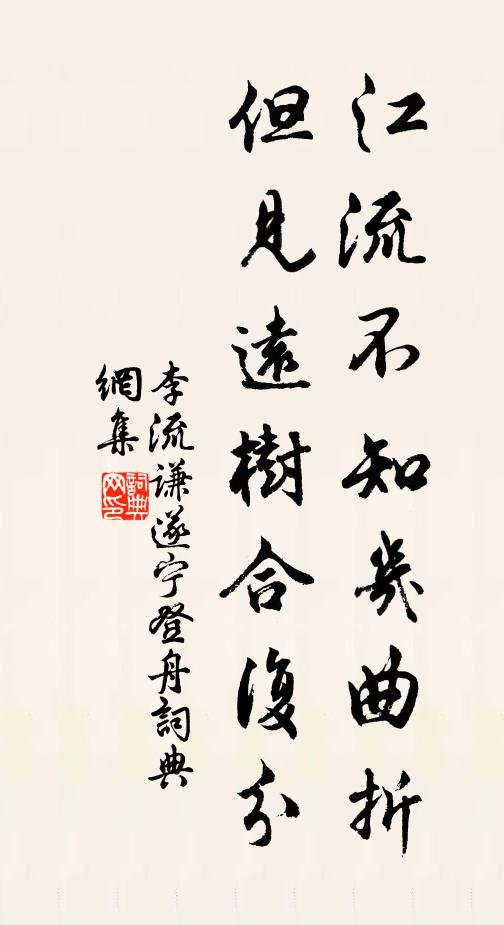 江流不知幾曲折
但見遠樹合復分
李流謙遂宁登舟詞典
網集
詞典
网印